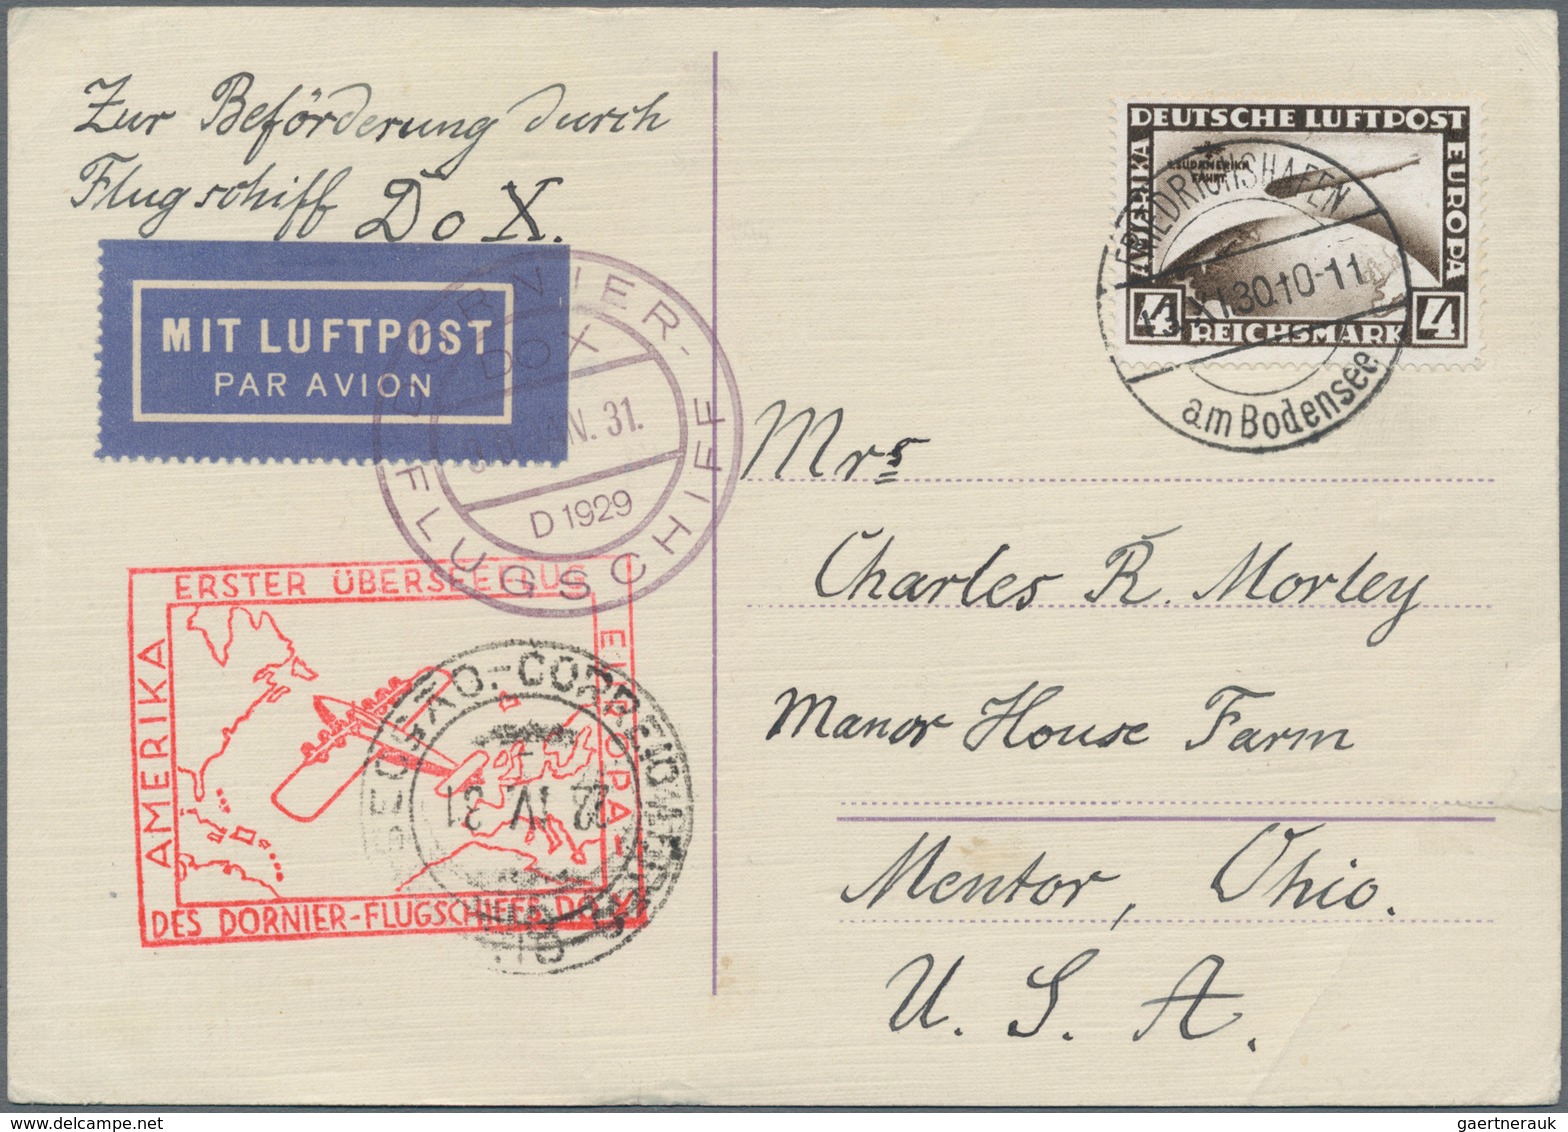 Zur Beförderung durch
Flugschiff Do X.
MIT LUFTPOST
PAR AVION
DORNIER-
FLUGSCHIFF
DO X
30. JAN. 31.
D 1929
ERSTER ÜBERSEEFLUG
AMERIKA
EUROPA
DES DORNIER-FLUGSCHIFFS DO X
22 IV 31
DEUTSCHE LUFTPOST
AMERIKA
EUROPA
1. SÜDAMERIKA
FAHRT
4
REICHSMARK
4
FRIEDRICHSHAFEN
XI.30.10-11
am Bodensee
Mrs
Charles R. Morley
Manor House Farm
Mentor, Ohio.
U. S. A.
gaertnerauk @ delcampe.net